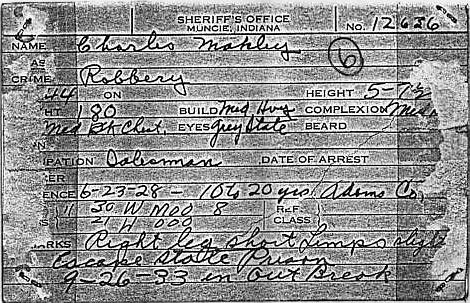 SHERIFF'S OFFICE
MUNCIE, INDIANA
No. 12626
NAME Charles Makley
6
AS
CRIME Robbery
44 ON HEIGHT 5-7½
HT 180 BUILD Med Hvy COMPLEXION Med
Med Dk Chest. EYES Grey Slate BEARD
N
PATION Salesman DATE OF ARREST
ER
ENCE 6-23-28 - 10 to 20 yrs Adams Co.
11 30 W MOO 8 REF.
S 21 W OOO CLASS
RKS Right leg short Limps slight
Escape State Prison
9-26-33 in Out Break